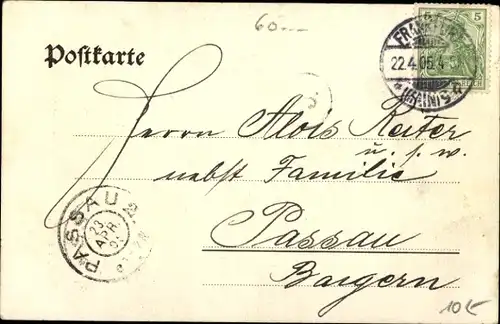 60.--
Postkarte
5 5
FRANKFURT
22.4.05.4
(MAIN)
Herrn Alois Reiter
u. s. w.
nebst Familie
Passau
Bayern
PASSAU 2.
23
APR
10E